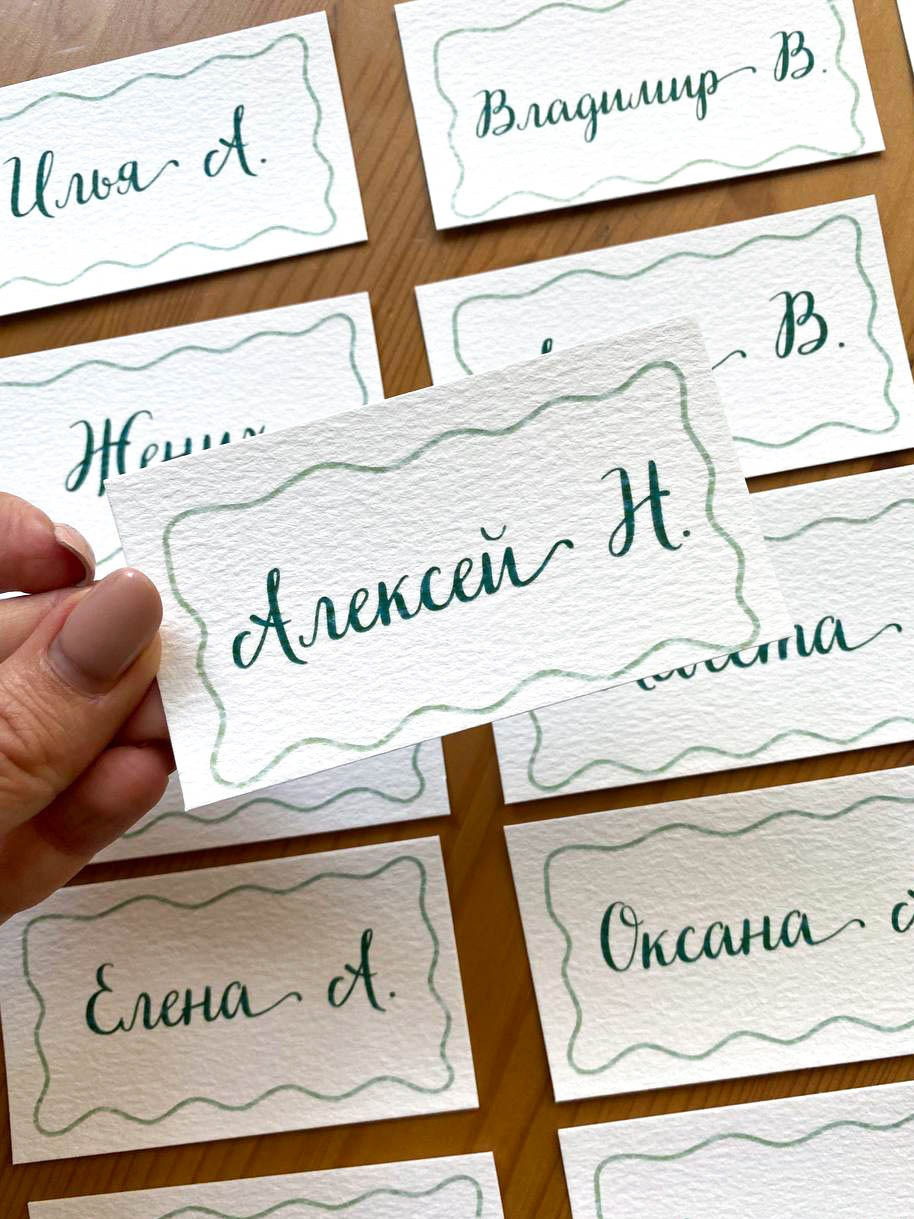 Илья А.
Владимир В.
В.
Жених
Алексей Н.
Елена А.
Оксана